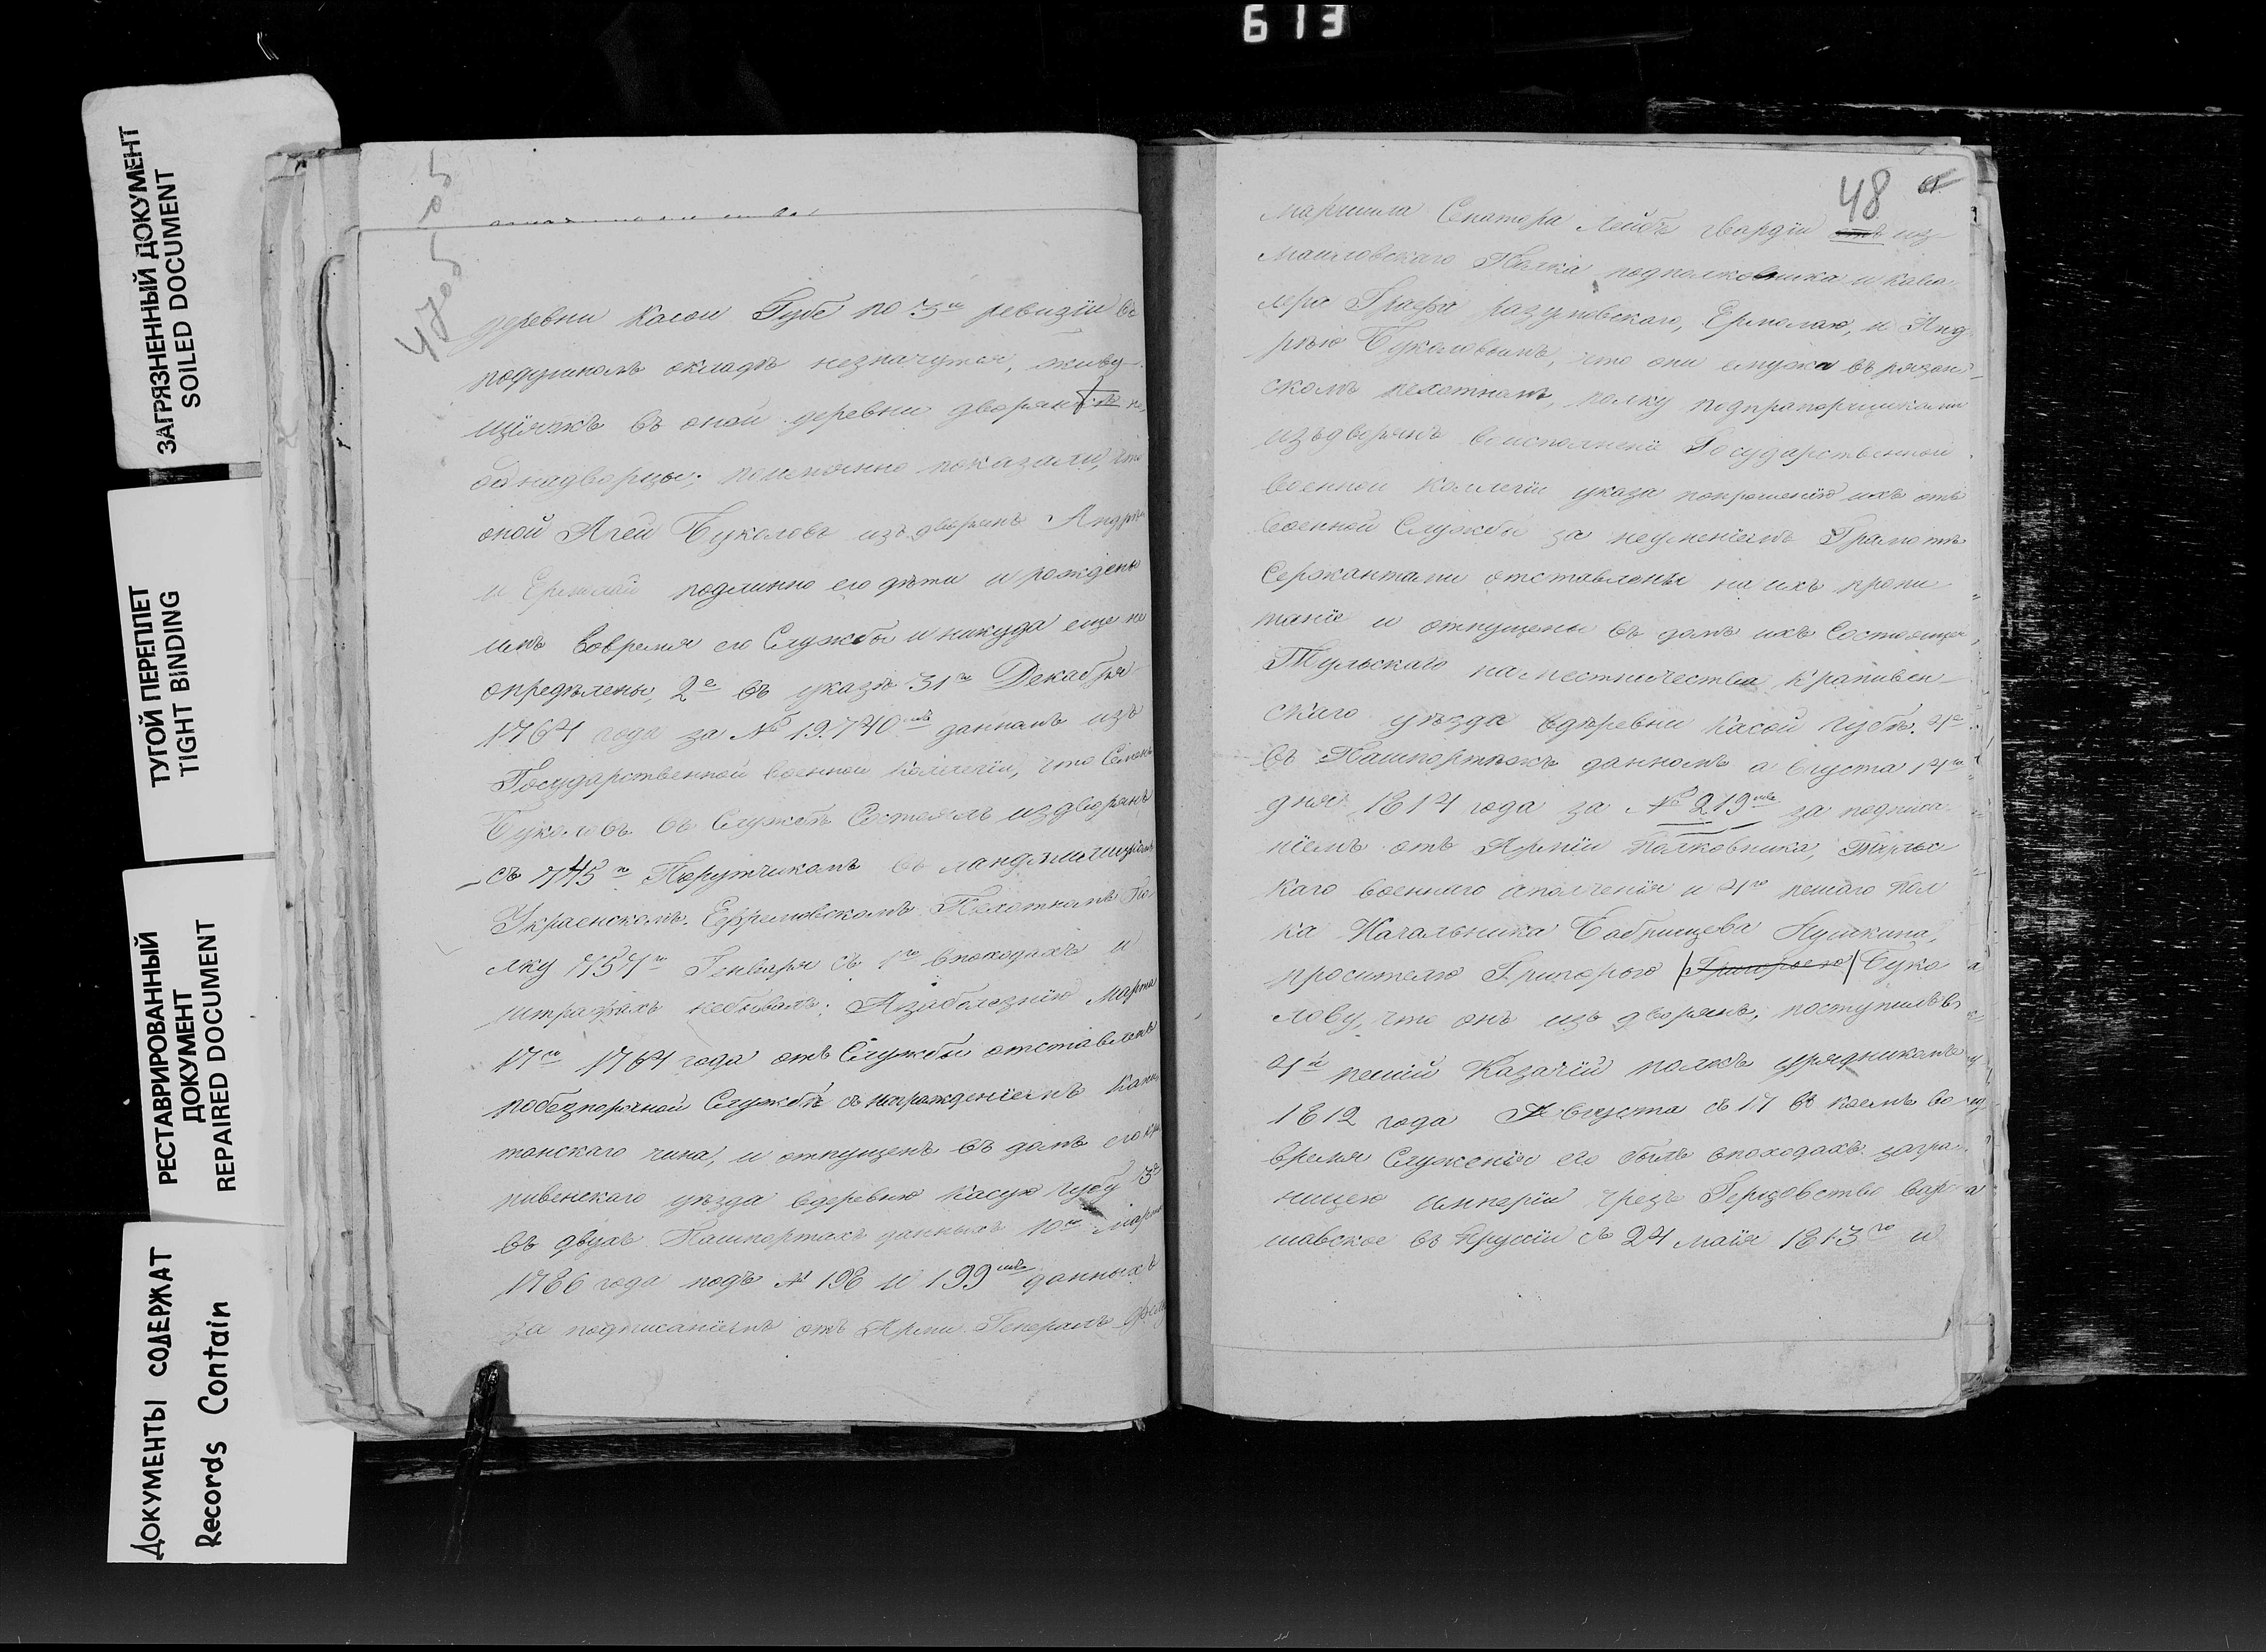 613
ЗАГРЯЗНЕННЫЙ ДОКУМЕНТ
SOILED DOCUMENT
ТУГОЙ ПЕРЕПЛЕТ
TIGHT BINDING
РЕСТАВРИРОВАННЫЙ
ДОКУМЕНТ
REPAIRED DOCUMENT
ДОКУМЕНТЫ СОДЕРЖАТ
Records Contain
47об
деревни Касои Губе по 3й ревизіи въ
подушномъ окладѣ незначутся, живу-
щіяжъ въ оной деревни дворяне и
однадворцы; поимянно показали, что
оной Агей Букаловъ изъ дворянъ Андрѣй
и Ермолай подлинно его дѣти и рождены
имъ вовремя его Службы и никуда еще не
опредѣлены, 2е въ указѣ 31го Декабря
1764 года за № 19.740мъ данномъ изъ
Государственной военной Коллегіи, что Семенъ
Букаловъ въ Службѣ Состоялъ издворянъ
съ 745го Порутчикомъ въ ландмилицкомъ
Украенскомъ Ефремовскомъ Пехотномъ По-
лку 1754го Генваря съ 1го впоходахъ и
штрафахъ небывалъ; Азаболезнію Марта
17го 1764 года отъ Службы отставленъ
побезпорочной Службѣ съ награжденіемъ Капи
танскаго чина, и отпущенъ въ домъ его кра
пивенскаго уѣзда вдеревню Касую губу 3е
въ двухъ Пашпортахъ данныхъ 10го марта
1786 года подъ № 198 и 199мъ данныхъ
за подписаніемъ отъ Арми Генералъ Фелд
48
маршала Сенатора Лейбъ гвардіи из
маиловскаго Полка подполковника и кава
лера Графа разумовскаго, Ермолаю, и Анд
рѣю Букаловымъ, что они служа въ рязан-
скомъ пехотномъ, полку подпрапорщиками
изъдворянъ воисполненіе Государственной
военной Коллегіи указа попрошенію ихъ отъ
военной Службы за неуменіемъ Грамотѣ
Сержантами отставлены на ихъ пропи
таніе и отпущены въ домъ ихъ Состоящей
Тульскаго наместничества крапивен-
скаго уѣзда вдѣревни Касой губѣ. 4е
въ Пашпортѣжъ данномъ августа 14го
дня 1814 года за № 219мъ за подписа
ніемъ отъ Арміи Полковника, Тульс
каго военнаго аполченія и 4го пешаго Пол
ка Начальника Бобрищева Пушкина,
просителю Григорью (Григорьею) Бука
лову, что онъ изъ дворянъ, поступилъ въ
4й пешій Казачій полкъ урядникомъ
1812 года Августа съ 17 въ коемъ во
время Служенія его былъ впоходахъ загра
ницею имперіи чрезъ Герцовство вар
шавское въ Прусіи съ 24 маія 1813го и